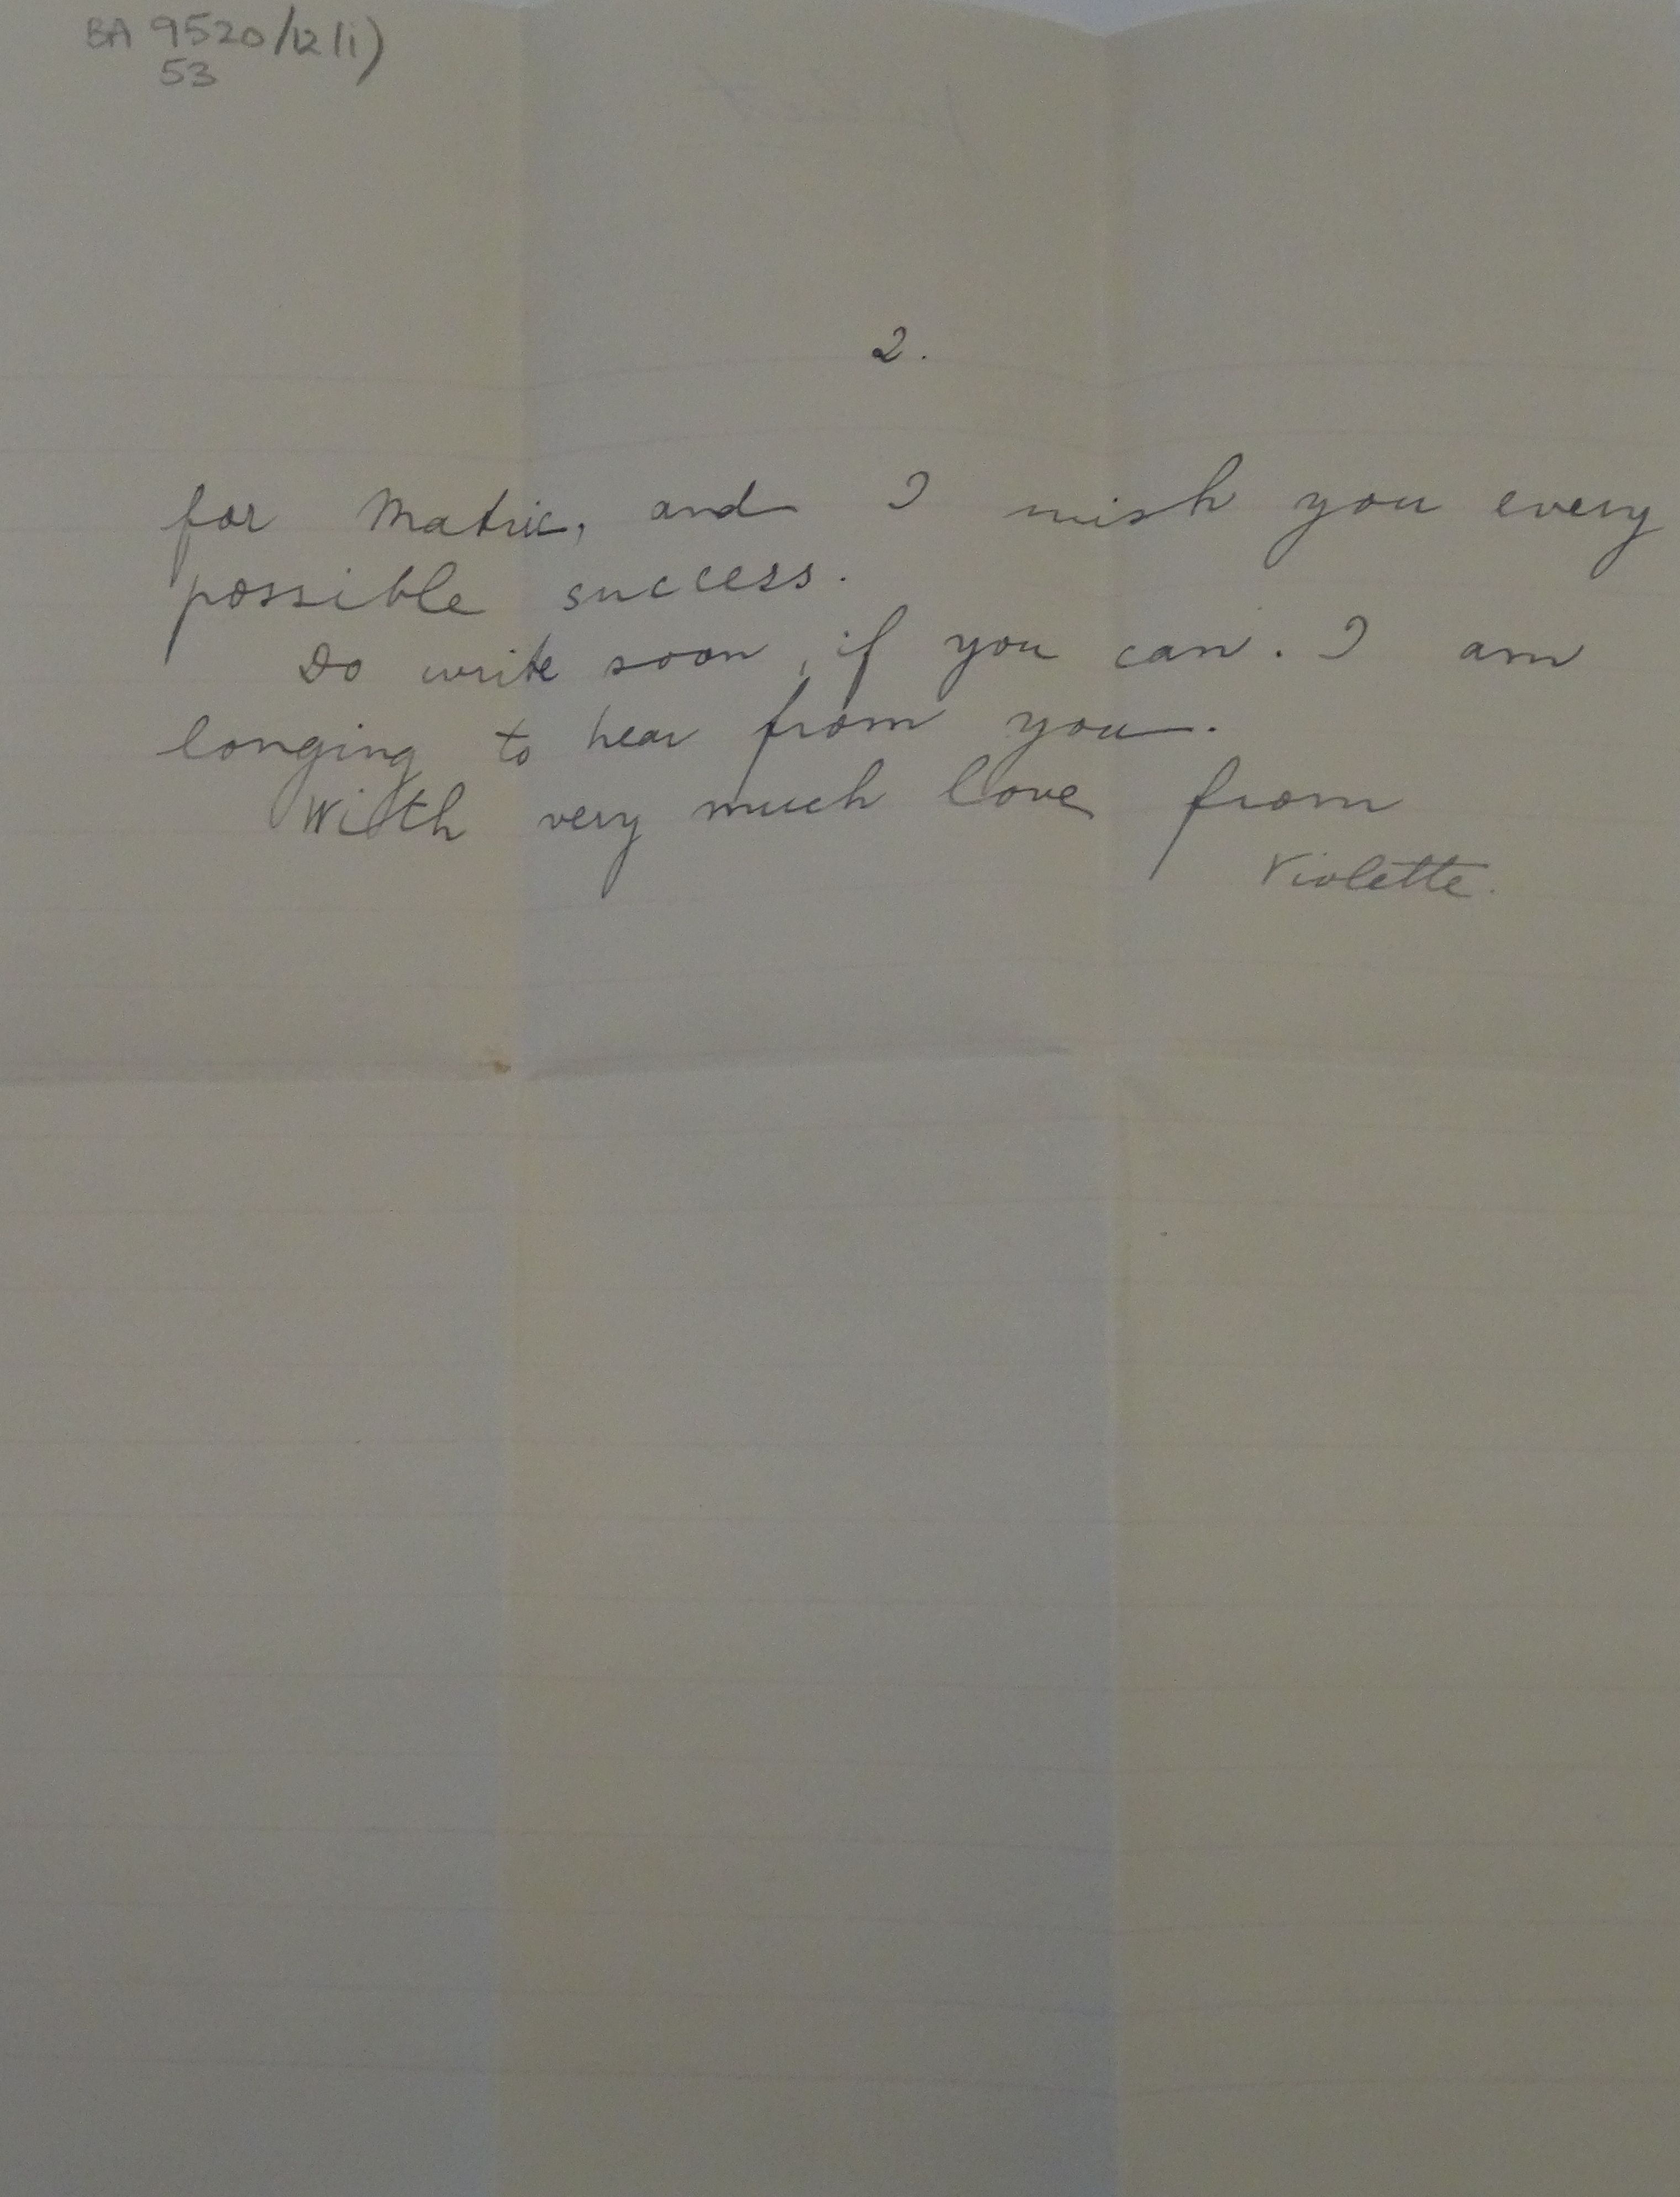 BA 9520/12(i)
53
2.
for Matric, and I wish you every
possible success.
Do write soon, if you can. I am
longing to hear from you.
With very much love from
Violette.